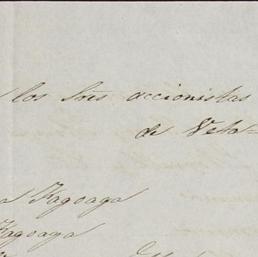 los Sres accionistas
de Veta-
Fagoaga
Fagoaga